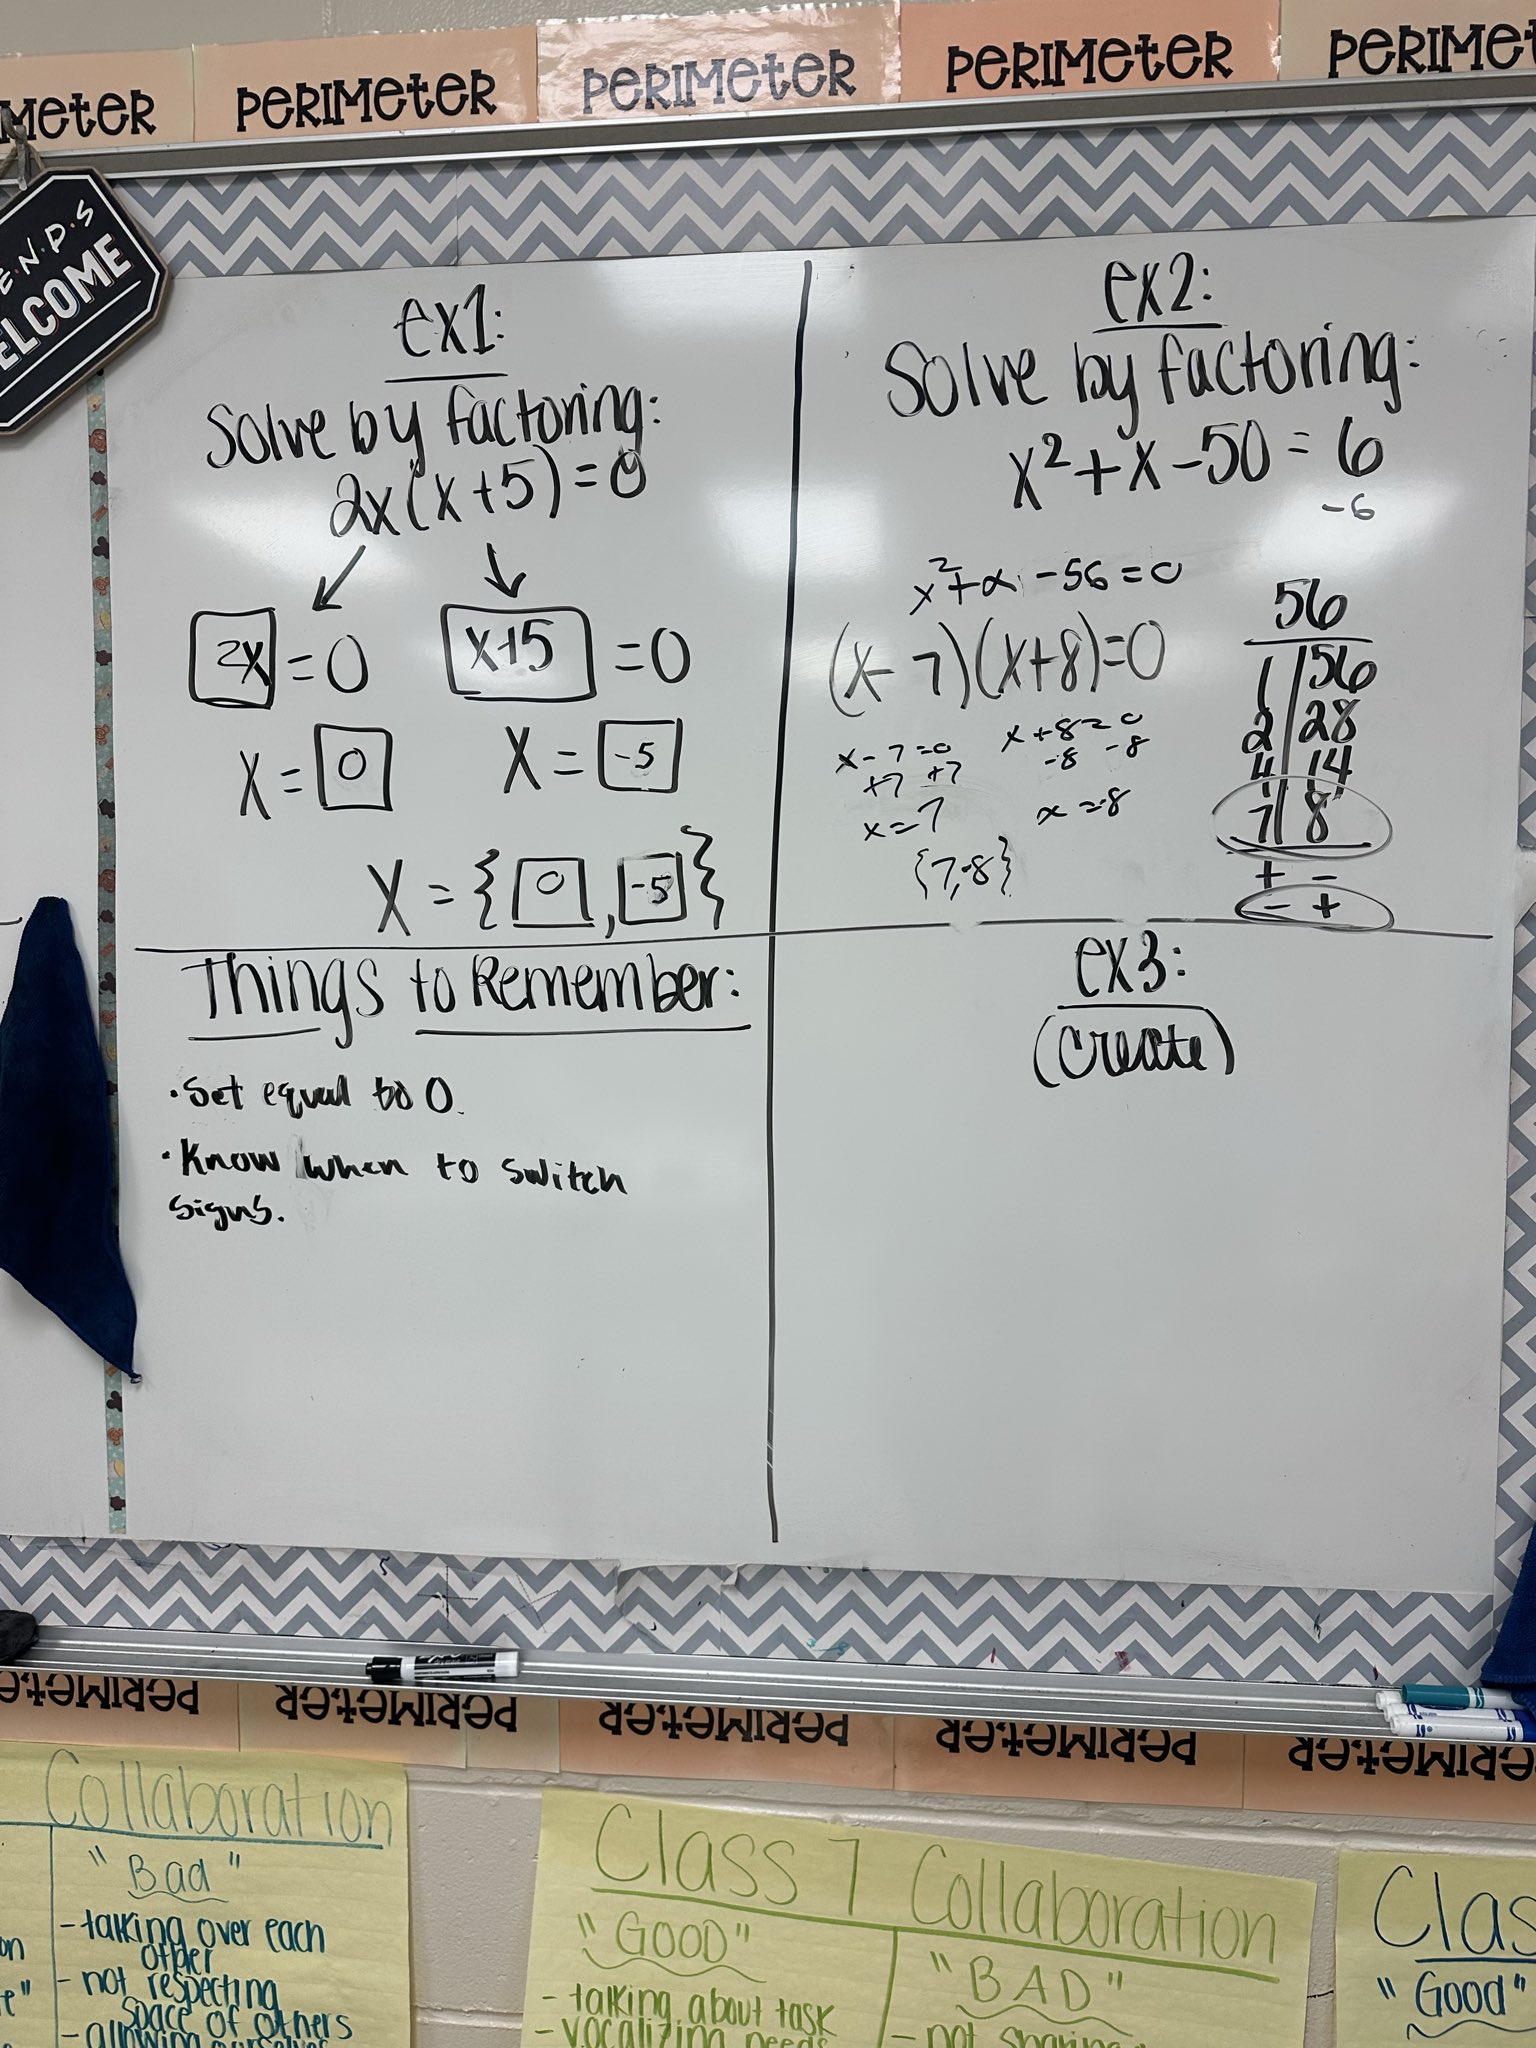 PERIMETER
PERIMETER
PERIMETER
WELCOME
ex1:
Solve by factoring:
2x(x+5)=0
2x =0
x+5 =0
X= 0
X= -5
X={0,-5}
ex2:
Solve by factoring:
x²+x-50=6
-6
x²+x-56=0
(x-7)(x+8)=0
x-7=0
+7 +7
x=7
x+8=0
-8 -8
x=-8
{7,-8}
56
1 56
2 28
4 14
7 8
+ -
- +
Things to Remember:
•Set equal to 0.
•Know when to switch
signs.
ex3:
(create)
PERIMETER
PERIMETER
PERIMETER
PERIMETER
Collaboration
"Bad"
- talking over each
other
- not respecting
space of others
Class 7 Collaboration
"GOOD"
- talking about task
- vocalizing needs
"BAD"
- not sharing
"Good"